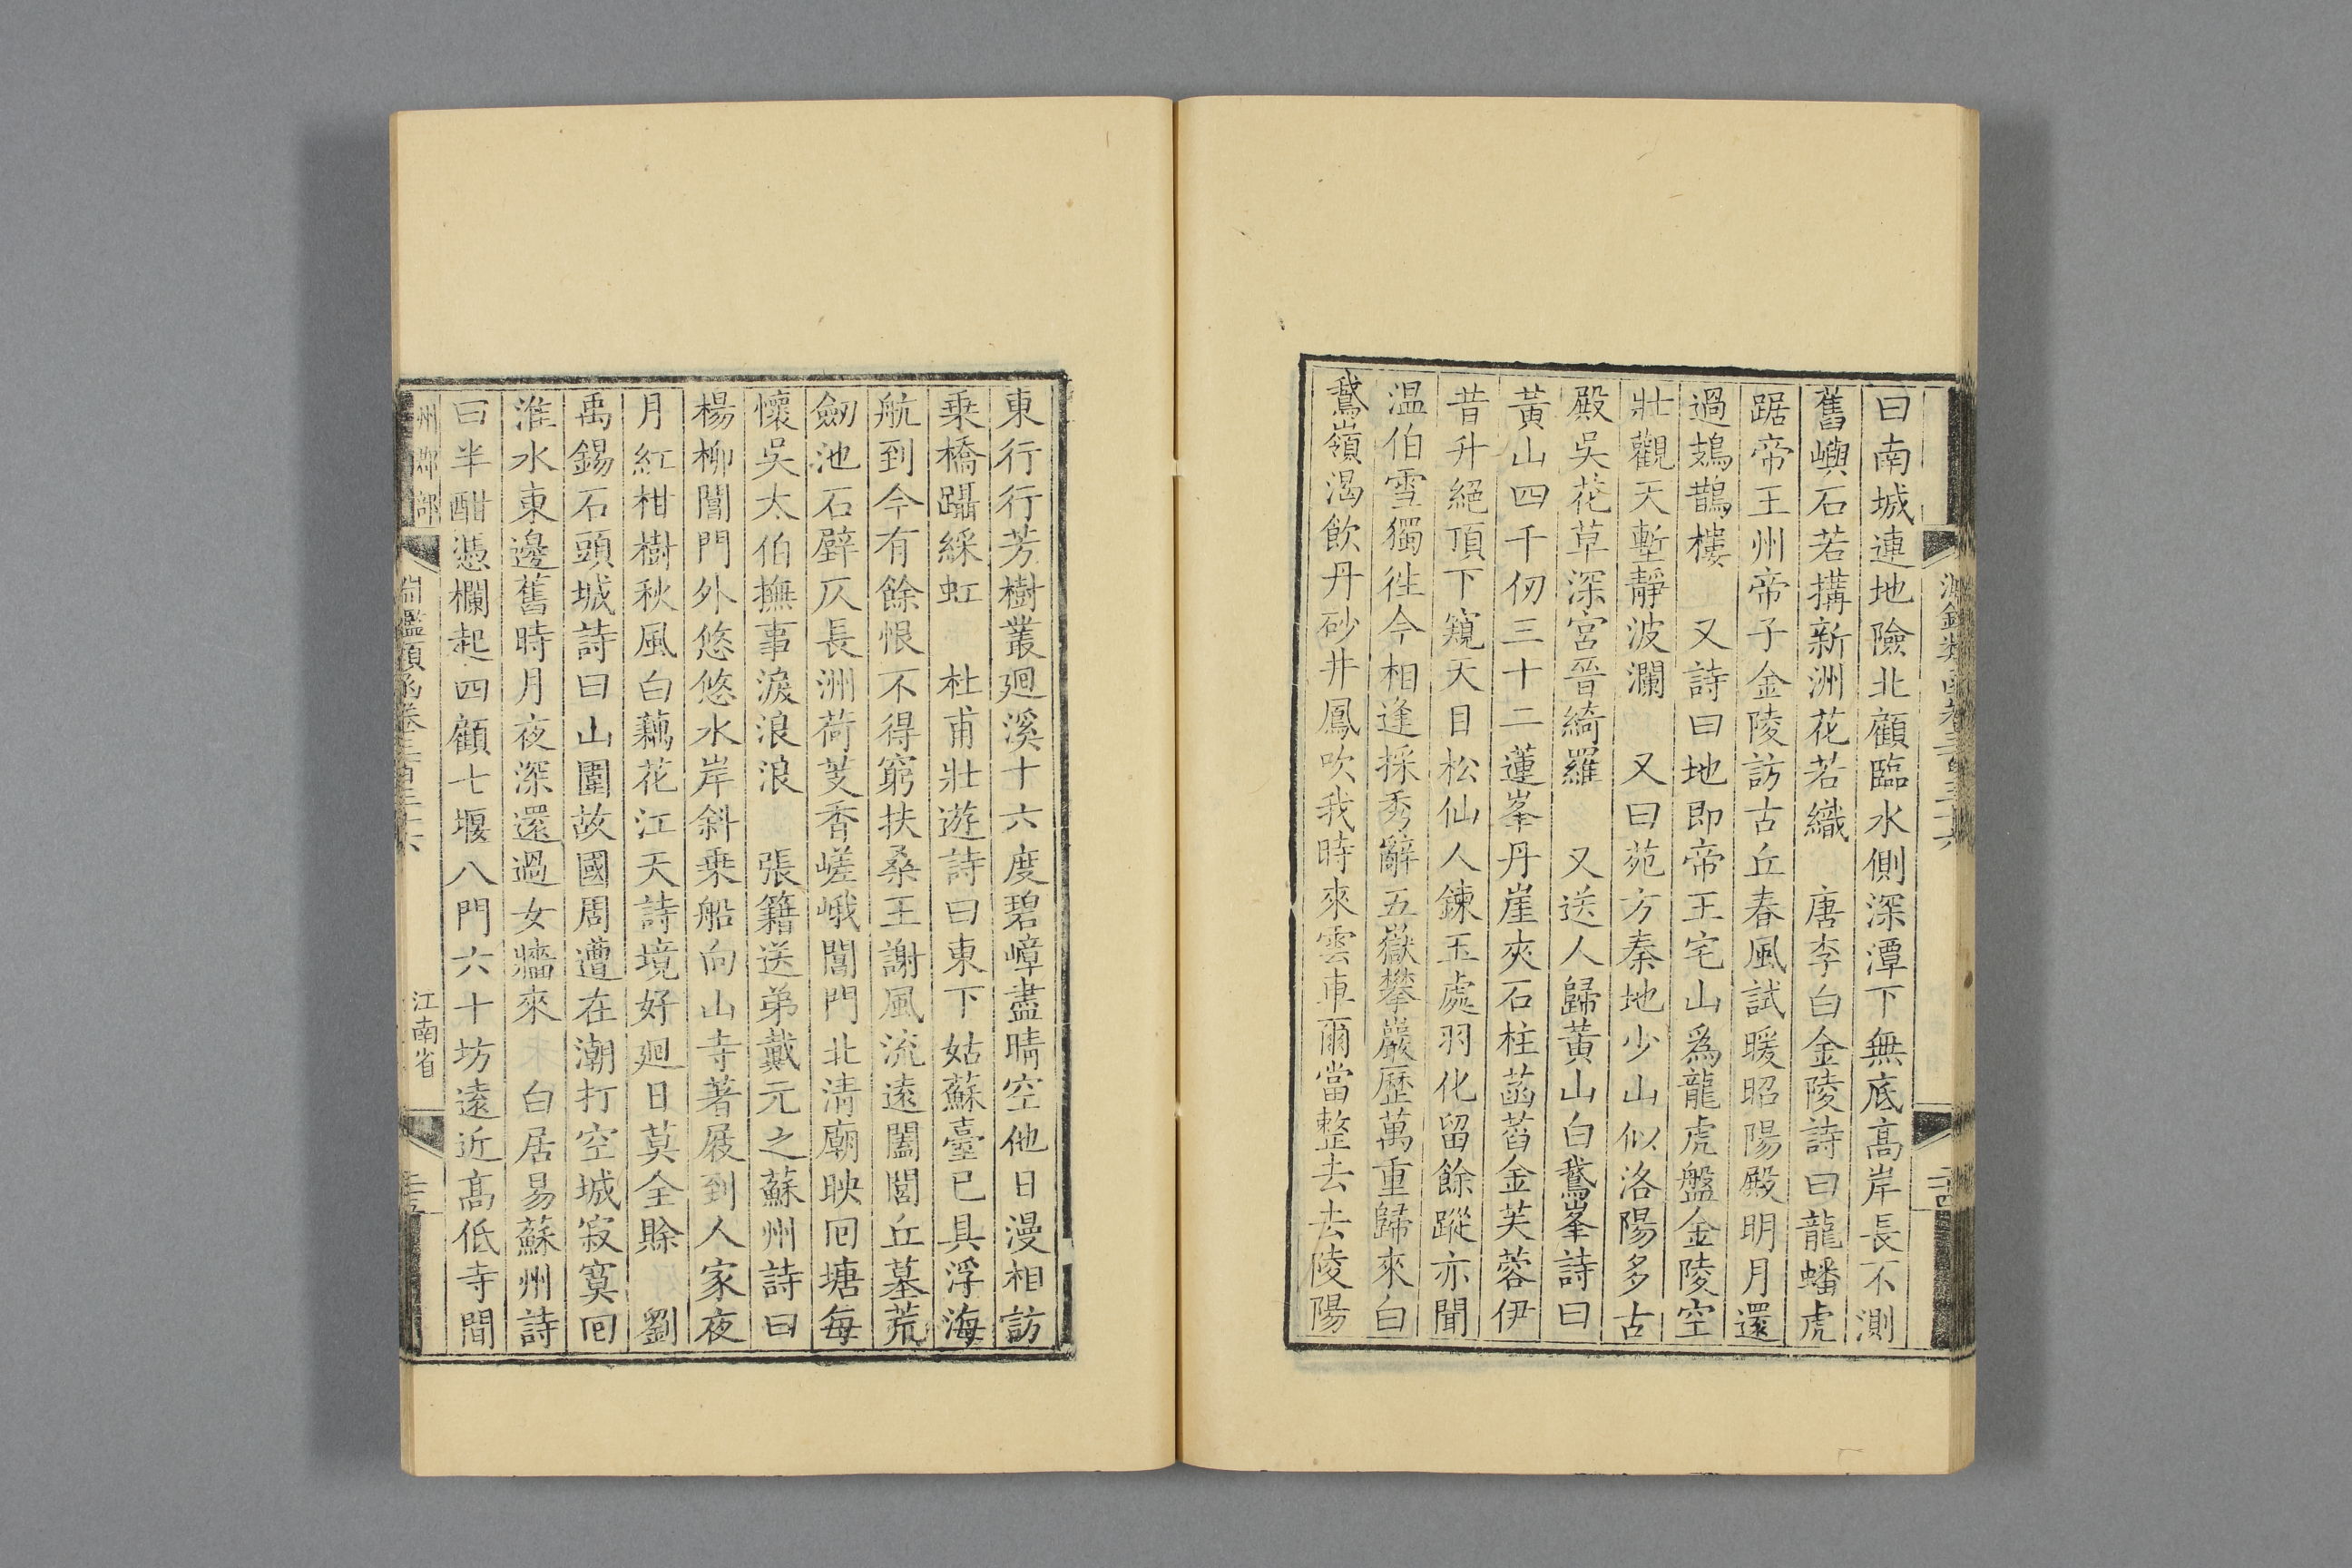 曰南城連地險北顧臨水側深潭下無底高岸長不測
舊嶼石若搆新洲花若織　唐李白金陵詩曰龍蟠虎
踞帝王州帝子金陵訪古丘春風試暖昭陽殿明月還
過鳷鵲樓　又詩曰地即帝王宅山爲龍虎盤金陵空
壯觀天塹靜波瀾　又曰苑方秦地少山似洛陽多古
殿吳花草深宮晉綺羅　又送人歸黃山白鵞峯詩曰
黃山四千仞三十二蓮峯丹崖夾石柱菡萏金芙蓉伊
昔升絕頂下窺天目松仙人鍊玉處羽化留餘蹤亦聞
温伯雪獨往今相逢採秀辭五嶽攀巖歷萬重歸來白
鵞嶺渴飲丹砂井鳳吹我時來雲車爾當整去去陵陽
東行行芳樹叢廻溪十六度碧嶂盡晴空他日漫相訪
乗橋躡綵虹　杜甫壯遊詩曰東下姑蘇臺已具浮海
航到今有餘恨不得窮扶桑王謝風流遠闔閭丘墓荒
劒池石壁仄長洲荷芰香嵯峨閶門北清廟映回塘每
懷吳太伯撫事淚浪浪　張籍送弟戴元之蘇州詩曰
楊柳閶門外悠悠水岸斜乗船向山寺著屐到人家夜
月紅柑樹秋風白藕花江天詩境好廻日莫全賒　劉
禹錫石頭城詩曰山圍故國周遭在潮打空城寂寞回
淮水東邊舊時月夜深還過女牆來　白居易蘇州詩
曰半酣憑欄起四顧七堰八門六十坊遠近高低寺間
州郡部
淵鑑類函卷三百三十六
江南省